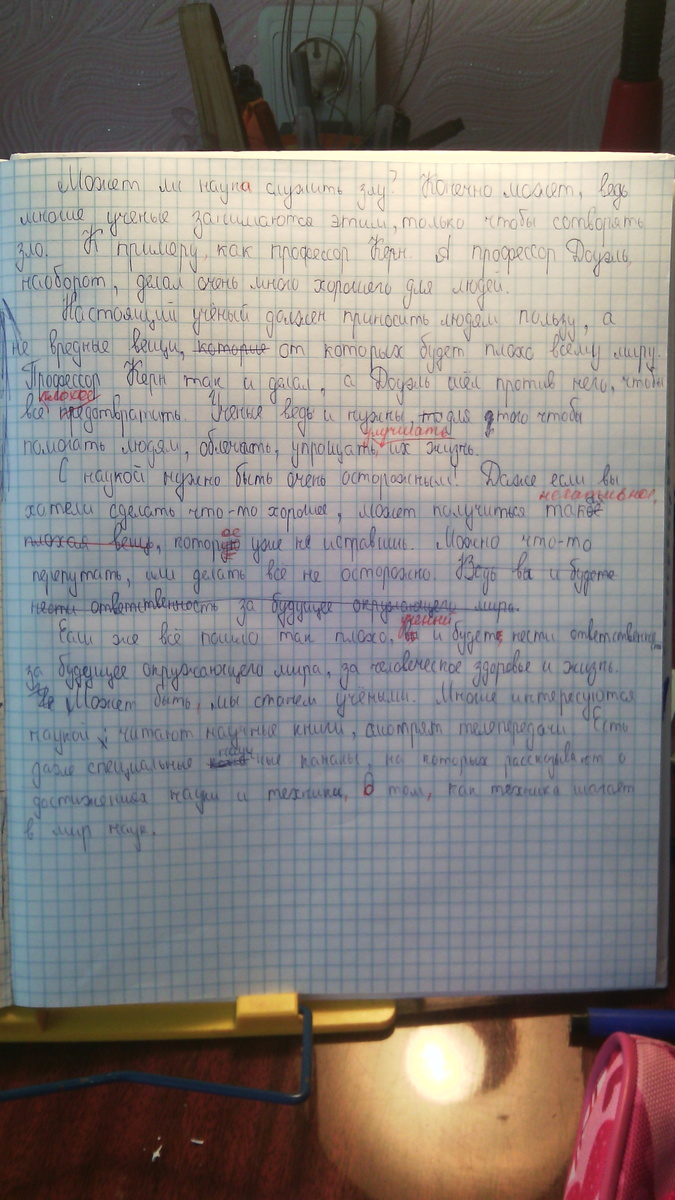 Может ли наука служить злу? Конечно может, ведь
многие учёные занимаются этим, только чтобы сотворять
зло. К примеру, как профессор Керн. А профессор Доуэль,
наоборот, делал очень много хорошего для людей.
Настоящий учёный должен приносить людям пользу, а
не вредные вещи, которые от которых будет плохо всему миру.
Профессор Керн так и делал, а Доуэль шёл против него, чтобы
плохое
всё предотвратить. Ученые ведь и нужны, то для этого чтобы
улучшать
помогать людям, облегчать, упрощать, их жизнь.
С наукой нужно быть очень осторожным! Даже если вы
непоправимое,
хотели сделать что-то хорошее, может получиться такое
ое
плохая вещь, которую уже не исправишь. Можно что-то
перепутать, или делать всё не осторожно. Ведь вы и будете
нести ответственность за будущее окружающего мира.
учёный
Если же всё пошло так плохо, вы и будете нести ответственность
за будущее окружающего мира, за человеческое здоровье и жизнь.
Может быть, мы станем учёными. Многие интересуются
наукой, читают научные книги, смотрят телепередачи. Есть
науч
даже специальные ные каналы, на которых рассказывают о
достижениях науки и техники, о том, как техника шагает
в мир наук.